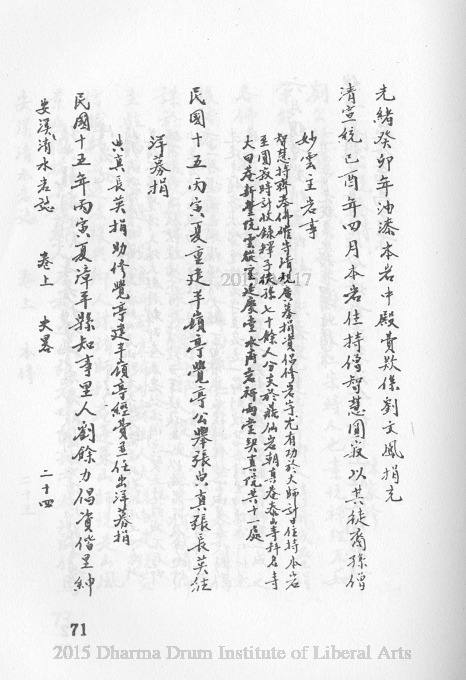 光緒癸卯年油漆本岩中殿費欵係劉文鳳捐充
清宣統己酉年四月本岩住持僧智慧圓寂以其徒裔孫僧
妙雲主岩事
智慧持齋奉佛確守清規廣募捐資倡修岩宇尤有功於大師計自住持本岩
至圓寂時計收錄釋子徒孫七十餘人分支於龍仙岩朝真巷泰山寺科名寺
大田巷新
民國十五丙寅夏重建半嶺亭覺亭公舉張典真張長英往
洋募捐
典真長英捐助修覺亭建半嶺亭經費並任出洋募捐
民國十五年丙寅夏漳平縣知事里人劉餘力倡資偕里紳
安溪清水岩誌 卷上 大畧 二十四
71
2015 Dharma Drum Institute of Liberal Arts